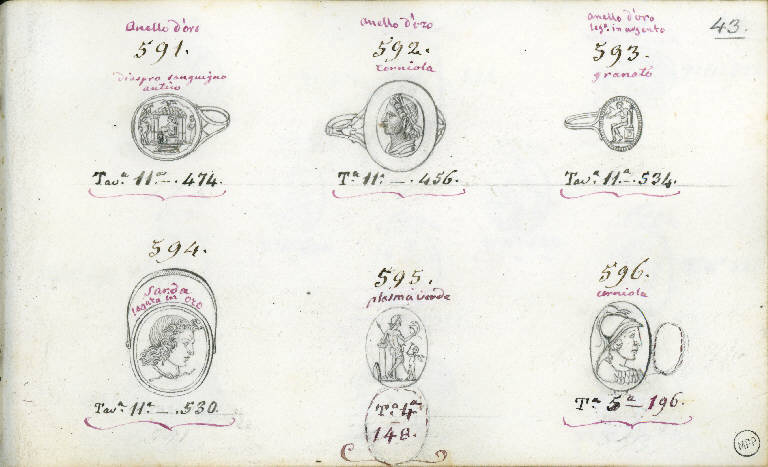 43.
Anello d'oro
591.
diaspro sanguigno
antico
Tavª. 11ª—.474.
Anello d'oro
592.
Corniola
Tª 11ª—.456.
Anello d'oro
legº. in argento
593.
granato
Tavª. 11ª—.534.
594.
Sarda
legata in oro
Tavª. 11ª—.530.
595.
plasma verde
Tª 4ª
148.
596.
corniola
Tª 5ª—196.
MPP